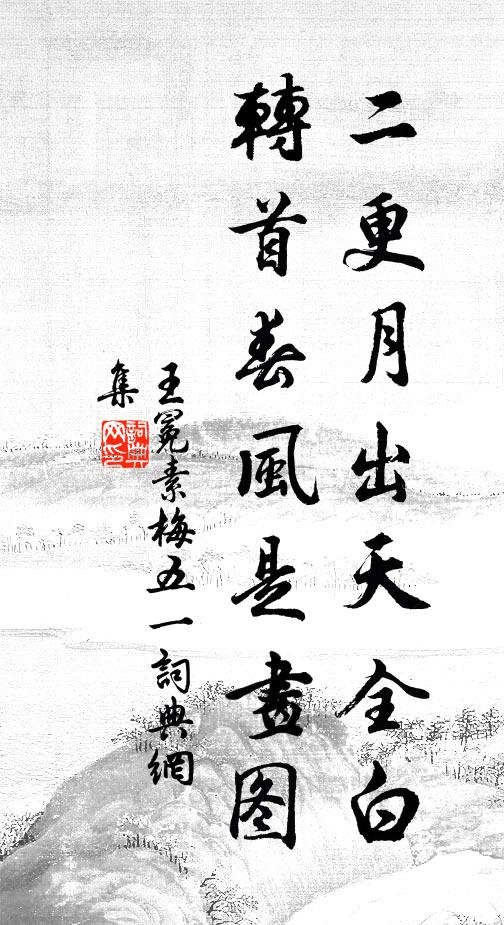 二更月出天全白
轉首春風是畫图
王冕素梅五一詞典網
集